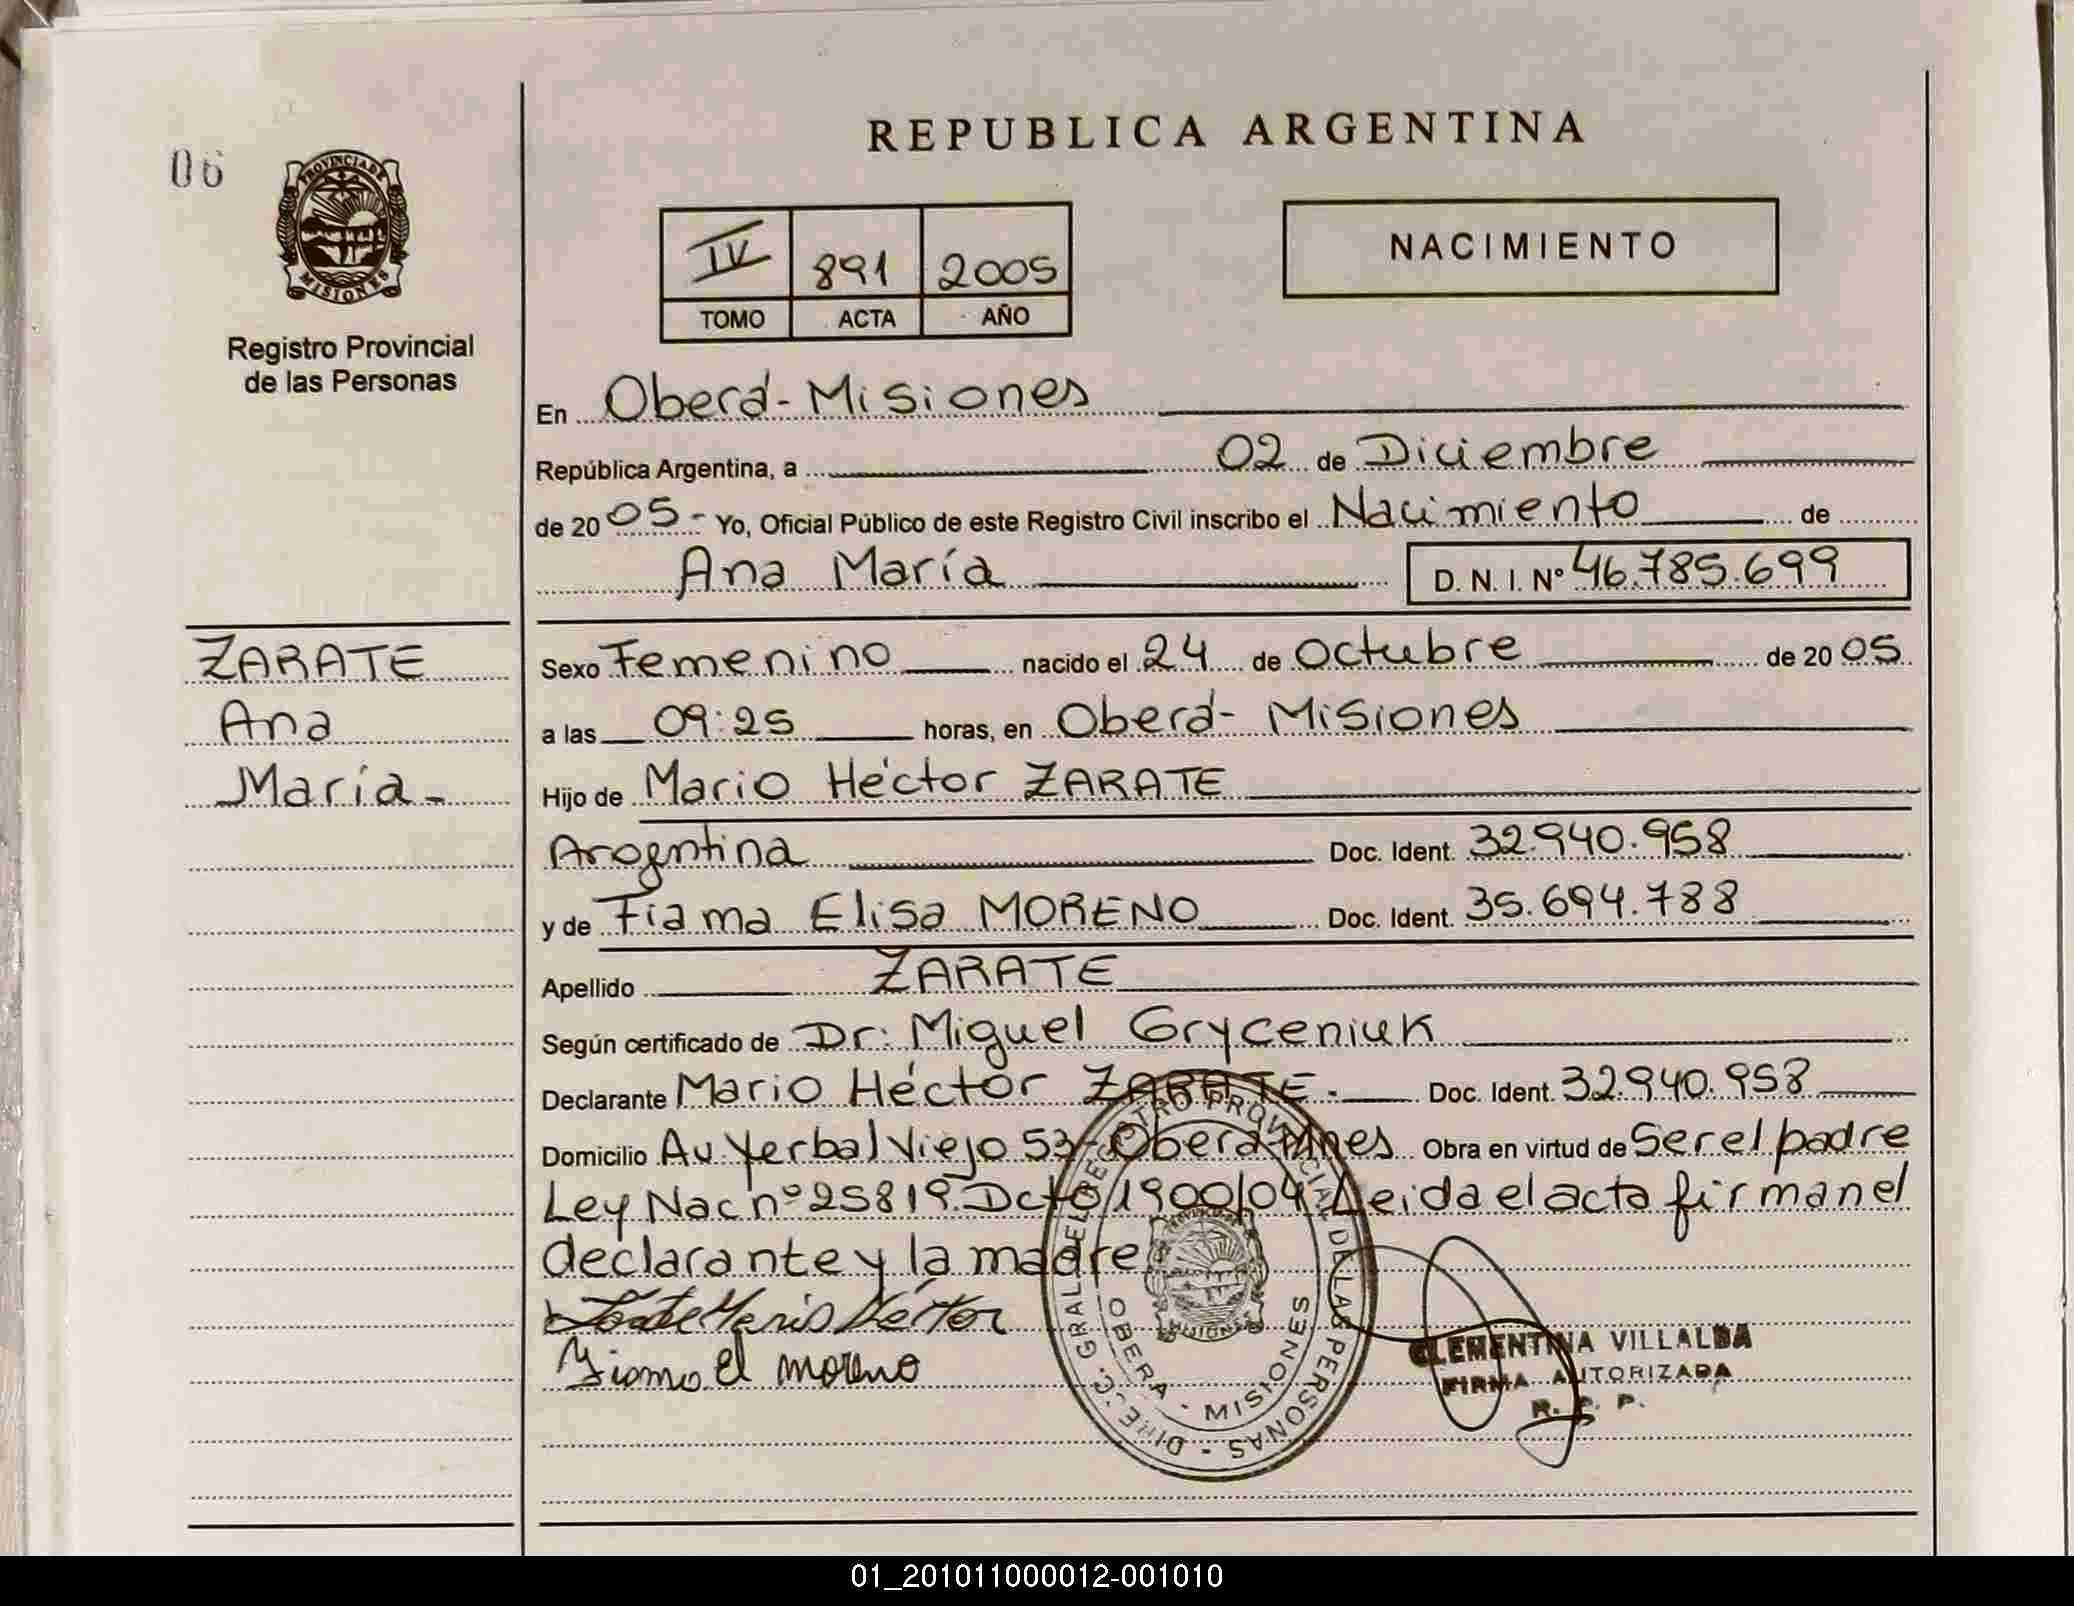 REPUBLICA ARGENTINA
06
PROVINCIA DE
MISIONES
Registro Provincial
de las Personas
IV 891 2005
TOMO ACTA AÑO
NACIMIENTO
En Oberá - Misiones
República Argentina, a 02 de Diciembre
de 2005 - Yo, Oficial Público de este Registro Civil inscribo el Nacimiento de
Ana María D. N. I. Nº 46.785.699
ZARATE
Ana
María -
Sexo Femenino nacido el 24 de Octubre de 2005
a las 09:25 horas, en Oberá - Misiones
Hijo de Mario Héctor ZARATE
Argentina Doc. Ident. 32.940.958
y de Fiama Elisa MORENO Doc. Ident. 35.694.788
Apellido ZARATE
Según certificado de Dr. Miguel Gryceniuk
Declarante Mario Héctor ZARATE. Doc. Ident. 32.940.958
Domicilio Av Yerbal Viejo 53 - Oberá Mnes Obra en virtud de Ser el padre
Ley Nac nº 25819. Dcto 1900/04 Leida el acta firman el
declarante y la madre
Zarate Mario Héctor
Fiama El moreno
DIRECC. GRAL. DEL REGISTRO PROVINCIAL DE LAS PERSONAS
OBERA - MISIONES
CLEMENTINA VILLALBA
FIRMA AUTORIZADA
R. P. P.
01_201011000012-001010